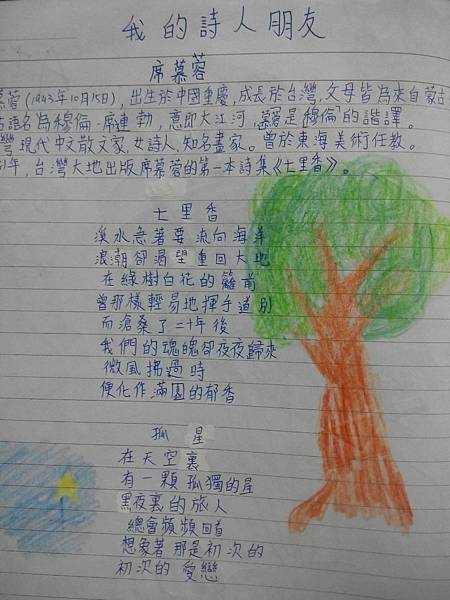 我的詩人朋友
席慕蓉
慕蓉(1943年10月15日),出生於中國重慶,成長於台灣,父母皆為來自蒙古
古語名為穆倫·席連勃,意即大江河,慕蓉是「穆倫」的諧譯。
灣現代中文散文家、女詩人、知名畫家。曾於東海美術任教。
81年,台灣大地出版席慕蓉的第一本詩集《七里香》。
七里香
溪水急著要流向海洋
浪潮卻渴望重回大地
在綠樹白花的籬前
曾那樣輕易地揮手道別
而滄桑了二十年後
我們的魂魄卻夜夜歸來
微風拂過時
便化作滿園的郁香
孤星
在天空裏
有一顆孤獨的星
黑夜裏的旅人
總會頻頻回首
想象著那是初次的
初次的愛戀